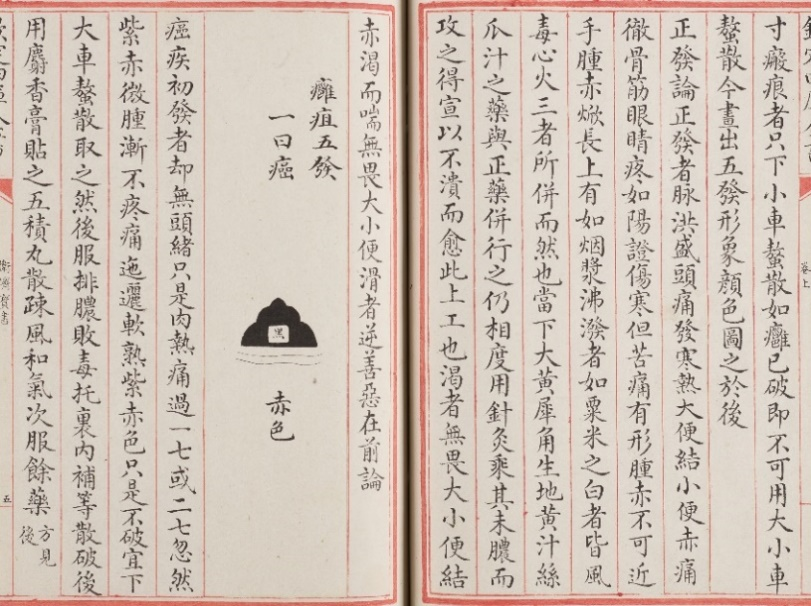 卷上
寸瘢痕者只下小車螯散如癰已破即不可用大小車
螯散今畫出五發形象顔色圖之於後
正發論正發者脉洪盛頭痛發寒熱大便結小便赤痛
徹骨筋眼睛疼如陽證傷寒但苦痛有形腫赤不可近
手腫赤焮長上有如烟漿沸潑者如粟米之白者皆風
毒心火三者所併而然也當下大黄犀角生地黄汁絲
瓜汁之藥與正藥併行之仍相度用針灸乘其未膿而
攻之得宣以不潰而愈此上工也渴者無畏大小便結
赤渴而喘無畏大小便滑者逆善惡在前論
癰疽五發
一曰癌
黑
赤色
癌疾初發者却無頭緒只是肉熱痛過一七或二七忽然
紫赤微腫漸不疼痛迤邐軟熟紫赤色只是不破宜下
大車螯散取之然後服排膿敗毒托裏內補等散破後
用麝香膏貼之五積丸散疎風和氣次服餘藥方見後
衛濟寶書
五